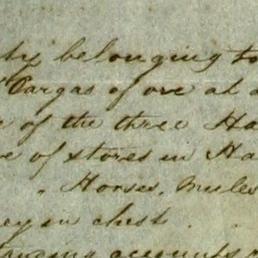 belonging to
Cargas of ore at
of the three Ha
of stores in Ha
" Horses, Mules
in chest.
accounts